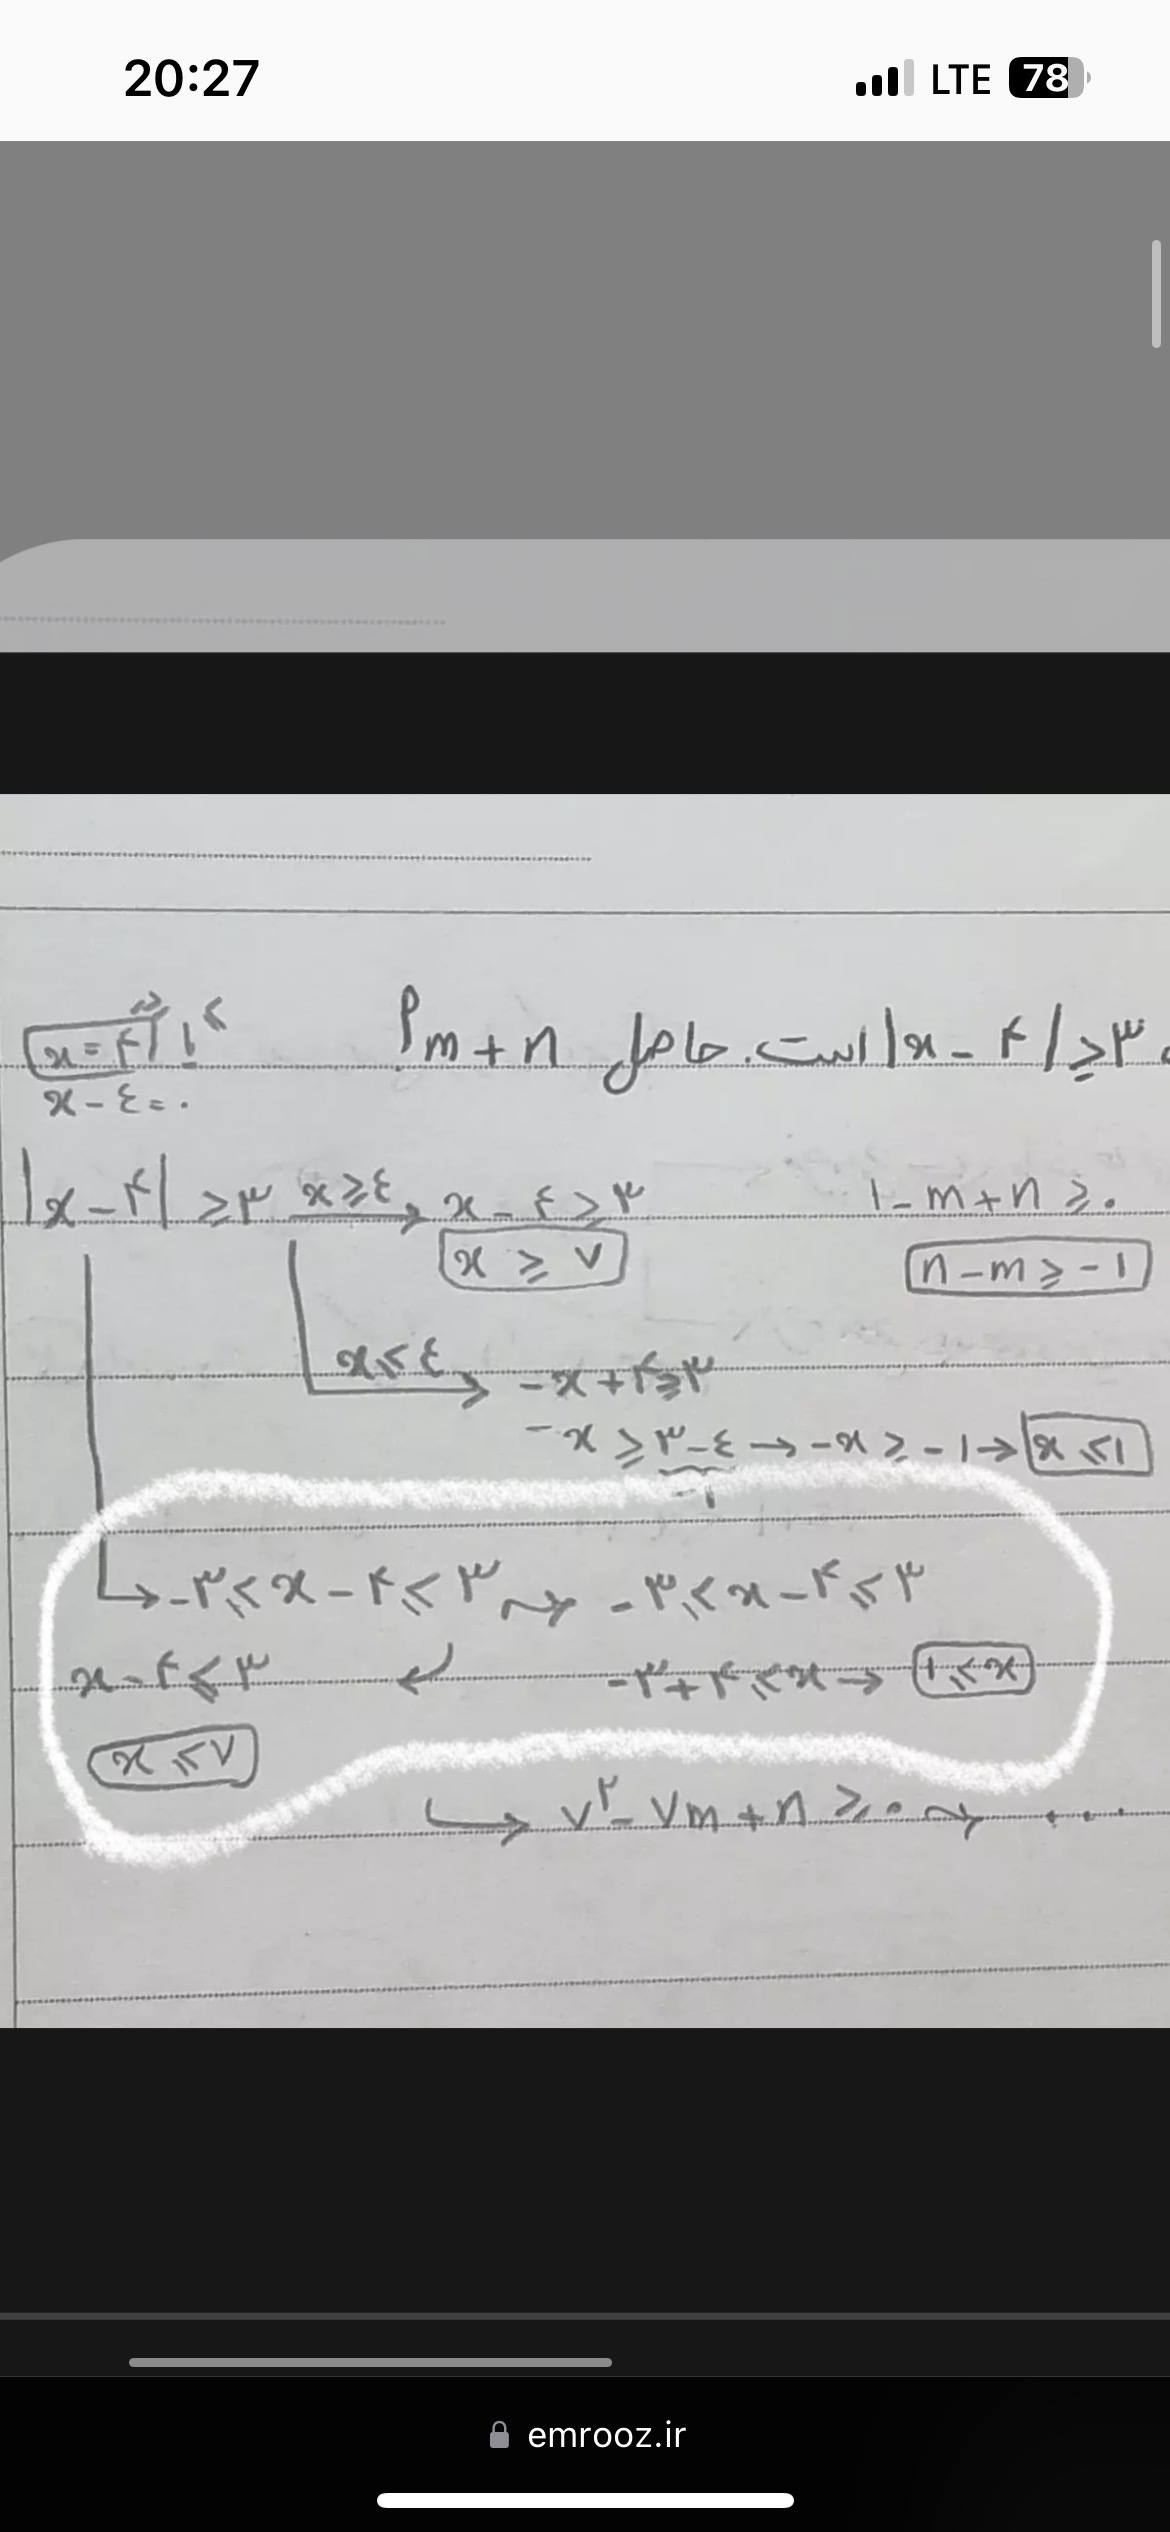 20:27 LTE 78
|x - ۴| ≥ ۳ است. حاصل m + n ؟
x = ۴
x - ٤ = ۰
|x - ۴| ≥ ۳ x ≥ ٤ → x - ٤ ≥ ۳
۱ - m + n ≥ ۰
x ≥ ۷
n - m ≥ - ۱
x ≤ ٤ → - x + ۴ ≥ ۳
- x ≥ ۳ - ٤ → - x ≥ - ۱ → x ≤ ۱
- ۱
↳ - ۳ ≤ x - ۴ ≤ ۳ ⇝ - ۳ ≤ x - ۴ ≤ ۳
x - ۴ ≤ ۳ ↙ - ۳ + ۴ ≤ x → ۱ ≤ x
x ≤ ۷
↳ ۷² - ۷m + n ≥ ۰ ⇝ ...
emrooz.ir